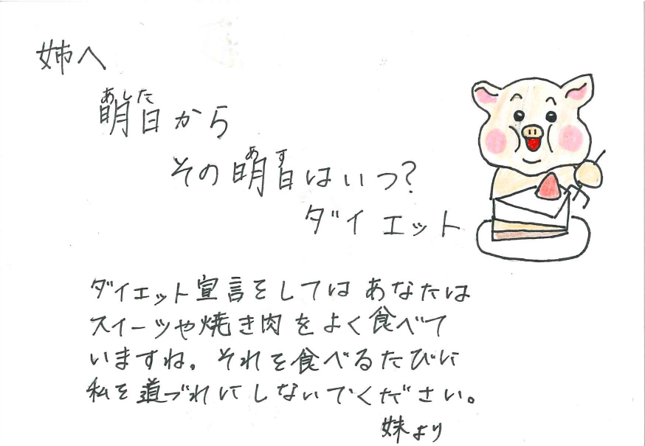 姉へ
明日から
その明日はいつ?
ダイエット
ダイエット宣言をしては あなたは
スイーツや焼き肉をよく食べて
いますね。それを食べるたびに
私を道づれにしないでください。
妹より